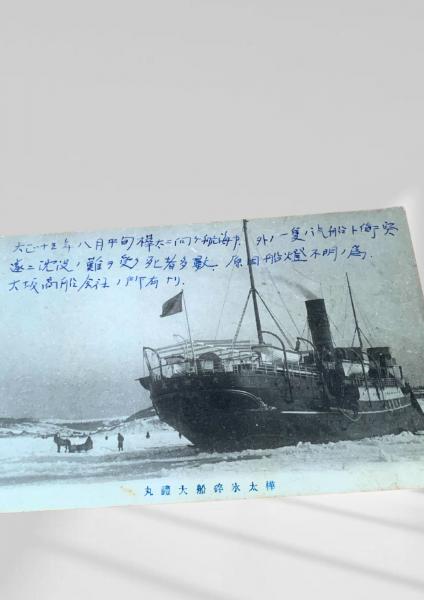 大正十五年八月中旬樺太ニ向ケ航海中、外ノ一隻ノ汽船ト衝突
遂ニ沈没ノ難ヲ受ケ死者多数、原因船燈不明ノ為、
大坂商船会社ノ所有ナリ、
丸禮大船碎氷太樺